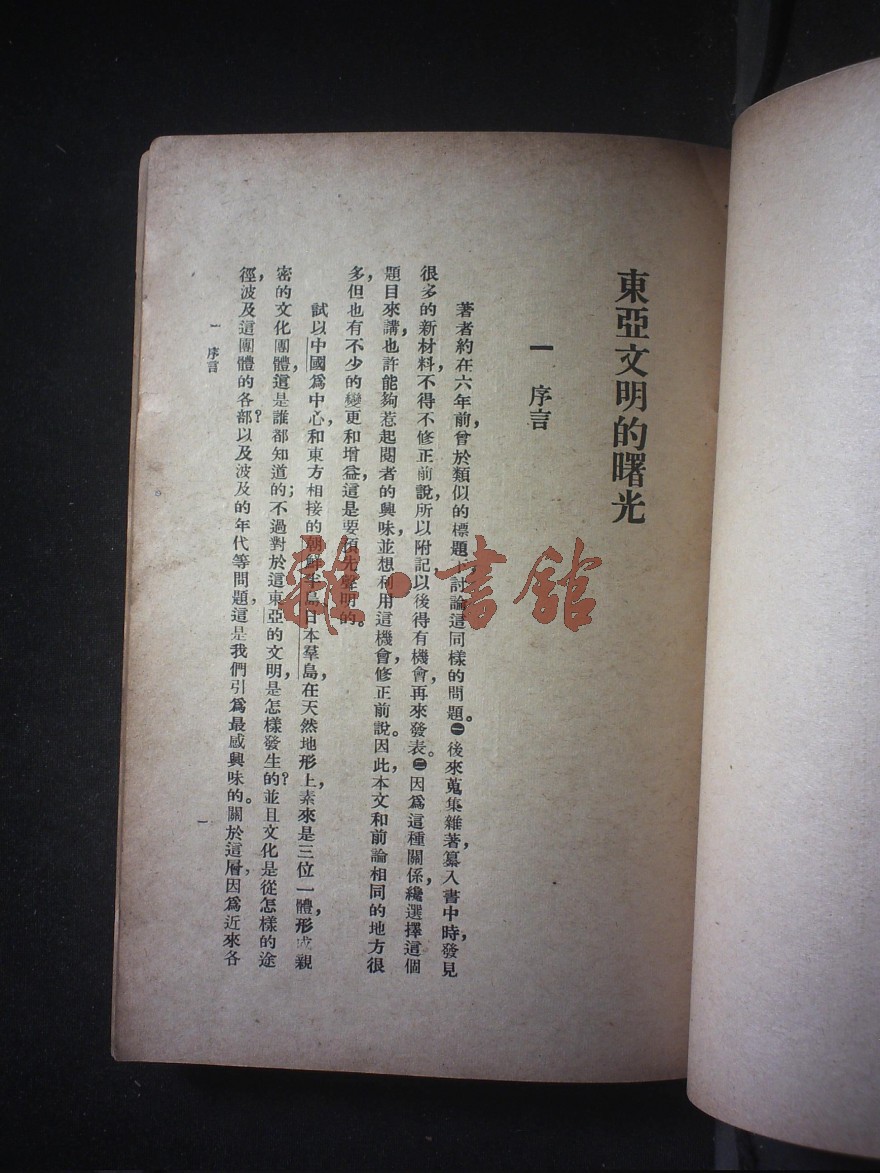 東亞文明的曙光
一 序言
著者約在六年前,曾於類似的標題下討論這同樣的問題。㊀後來蒐集雜著,纂入書中時,發見
很多的新材料,不得不修正前說,所以附記以後得有機會,再來發表。㊁因爲這種關係,纔選擇這個
題目來講,也許能夠惹起閱者的興味,並想利用這機會,修正前說。因此,本文和前論相同的地方很
多,但也有不少的變更和增益,這是要預先聲明的。
試以中國爲中心,和東方相接的朝鮮半島日本羣島,在天然地形上,素來是三位一體,形成親
密的文化團體,這是誰都知道的;不過對於這東亞的文明,是怎樣發生的?並且文化是從怎樣的途
徑,波及這團體的各部?以及波及的年代等問題,這是我們引爲最感興味的。關於這層,因爲近來各
一 序言
一
雜·書館